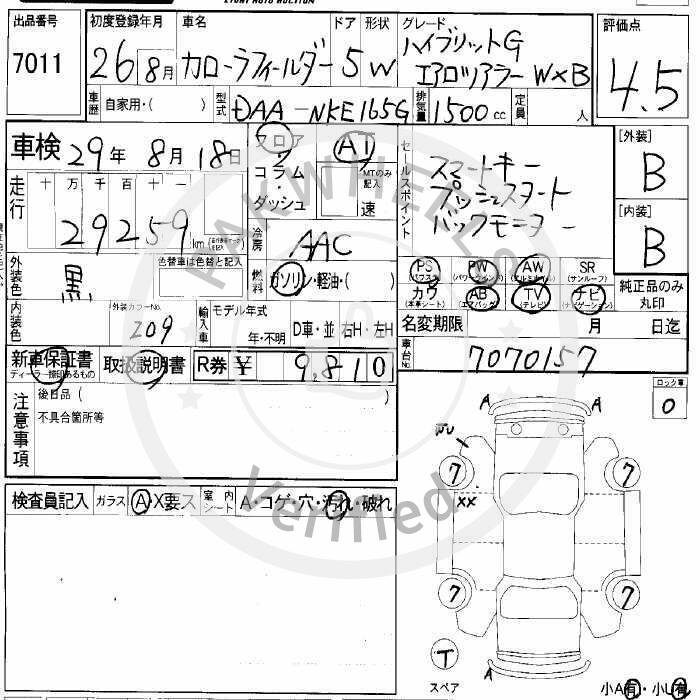 出品番号 7011
初度登録年月 26 8月
車名 カローラフィールダー
ドア 形状 5 W
グレード ハイブリットG
エアロツアラー W×B
評価点 4.5
車歴 自家用・( )
型式 DAA-NKE165G
排気量 1500 cc
定員 人
車検 29年 8月 18日
フロア
コラム
ダッシュ
AT
MTのみ記入
速
セールスポイント
スマートキー
プッシュスタート
バックモニター
[外装] B
[内装] B
走行 十 万 千 百 十 一
29259 km
冷房 AAC
外装色 黒
色替車は色替と記入
燃料 ガソリン・軽油・( )
PS PW AW SR
(パワステ) (パワーウィンドウ) (アルミホイル) (サンルーフ)
カワ AB TV ナビ
(本革シート) (エアバッグ) (テレビ) (ナビゲーション)
純正品のみ丸印
内装色
外装カラーNo. 209
輸入車
モデル年式
年・不明
D車・並 右H・左H
名変期限 月 日迄
新車保証書 取扱説明書 R券 ¥ 9,810
ディーラー捺印あるもの
車台No. 7070157
注意事項
後日品 ( )
不具合箇所等
ロック車 0
検査員記入 ガラス A・X要ス
室内シート A・コゲ・穴・汚れ・破れ
A A
7 7
XX
7 7
T
スペア
小A有・小U有
PAKWHEELS
Verified